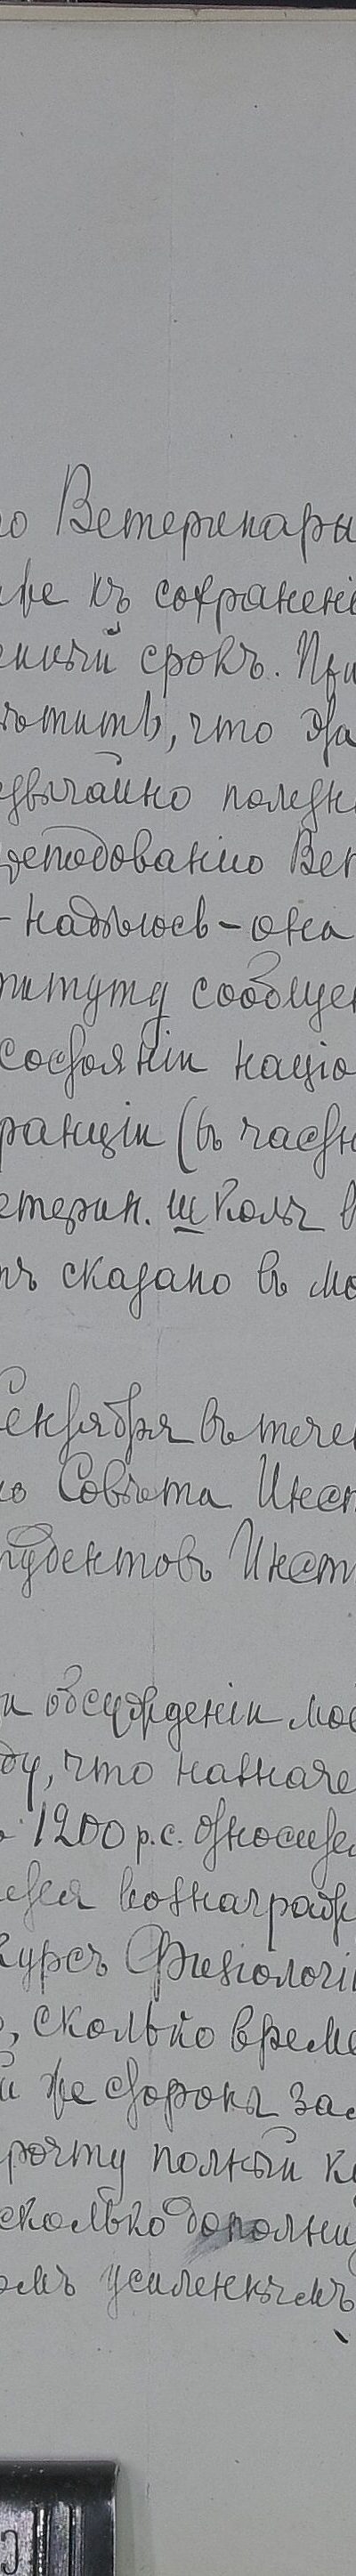 го Ветеринарн
же къ сохранені
енный срокъ. При
ѣтить, что эта
едвычайно полезн
реподованію Вет
- надѣюсь - она
титуту сообщен
состояніи націо
ранціи (въ частн
етерин. школъ в
тъ сказано въ мо
Сентября въ тече
ю Совѣта Инст
тудентовъ Инст
и обсужденіи мое
ду, что назначе
1200 р.с. относител
ется вознаграж
курсъ Физіологі
о, сколько време
й же стороны за
прочту полный к
сколько дополни
омъ усиленнымъ